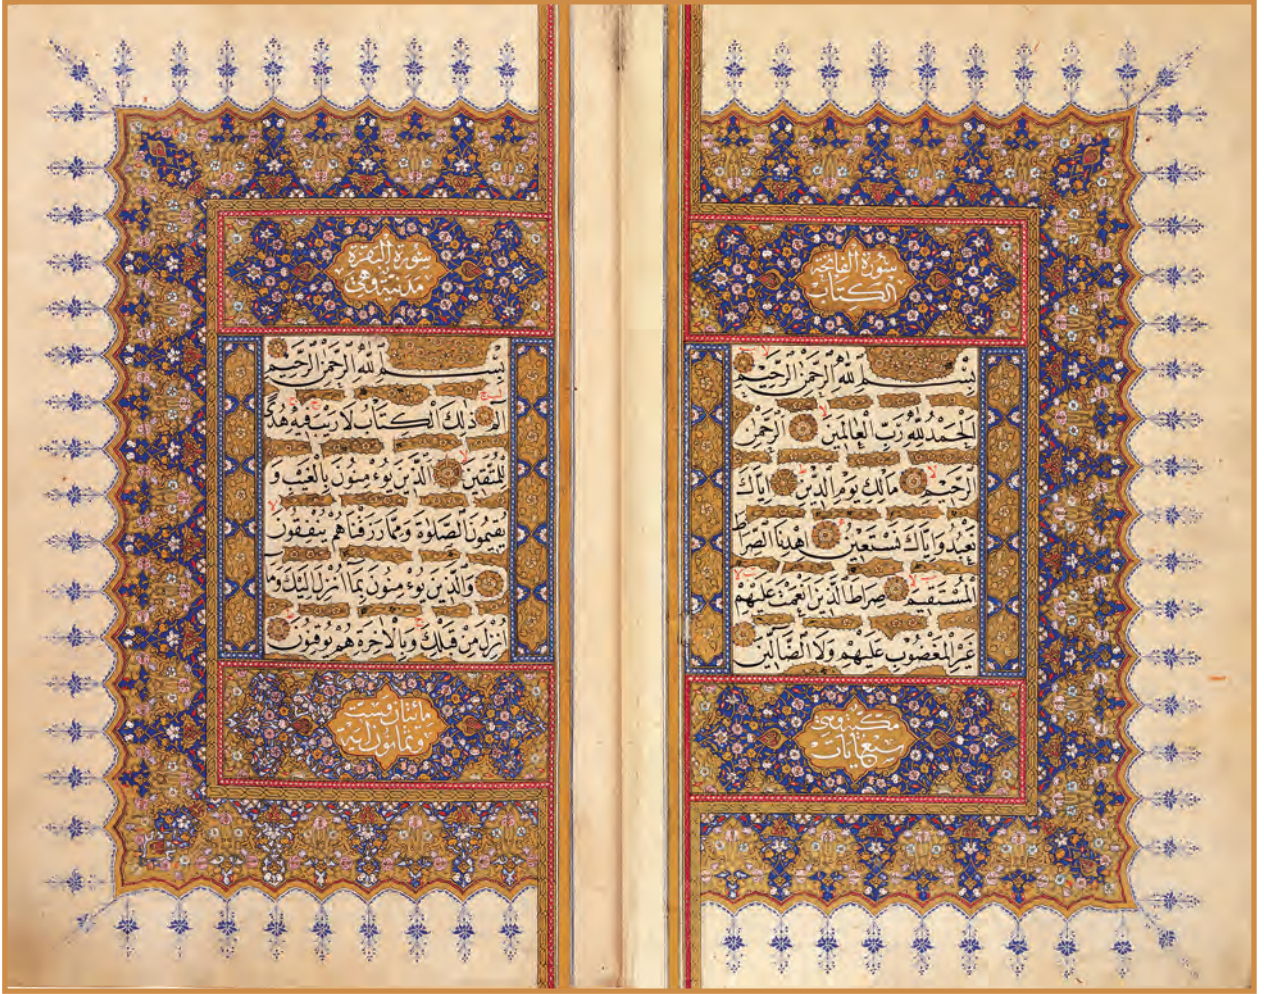 سُورَةُ الْفَاتِحَةِ
الْكِتَابِ
بِسْمِ اللّٰهِ الرَّحْمٰنِ الرَّحِيْمِ
اَلْحَمْدُ لِلّٰهِ رَبِّ الْعَالَمِيْنَ الرَّحْمٰنِ
الرَّحِيْمِ مَالِكِ يَوْمِ الدِّيْنِ اِيَّاكَ
نَعْبُدُ وَاِيَّاكَ نَسْتَعِيْنُ اِهْدِنَا الصِّرَاطَ
الْمُسْتَقِيْمَ صِرَاطَ الَّذِيْنَ اَنْعَمْتَ عَلَيْهِمْ
غَيْرِ الْمَغْضُوْبِ عَلَيْهِمْ وَلَا الضَّالِّيْنَ
مَكِّيَّةٌ وَهِيَ
سَبْعُ اٰيَاتٍ
سُورَةُ الْبَقَرَةِ
مَدَنِيَّةٌ وَهِيَ
بِسْمِ اللّٰهِ الرَّحْمٰنِ الرَّحِيْمِ
الٓمٓ ذٰلِكَ الْكِتَابُ لَا رَيْبَ فِيْهِ هُدًى
لِلْمُتَّقِيْنَ اَلَّذِيْنَ يُؤْمِنُوْنَ بِالْغَيْبِ وَ
يُقِيْمُوْنَ الصَّلٰوةَ وَمِمَّا رَزَقْنَاهُمْ يُنْفِقُوْنَ
وَالَّذِيْنَ يُؤْمِنُوْنَ بِمَآ اُنْزِلَ اِلَيْكَ وَمَا
اُنْزِلَ مِنْ قَبْلِكَ وَبِالْاٰخِرَةِ هُمْ يُوْقِنُوْنَ
مائتان وست
وثمانون اية